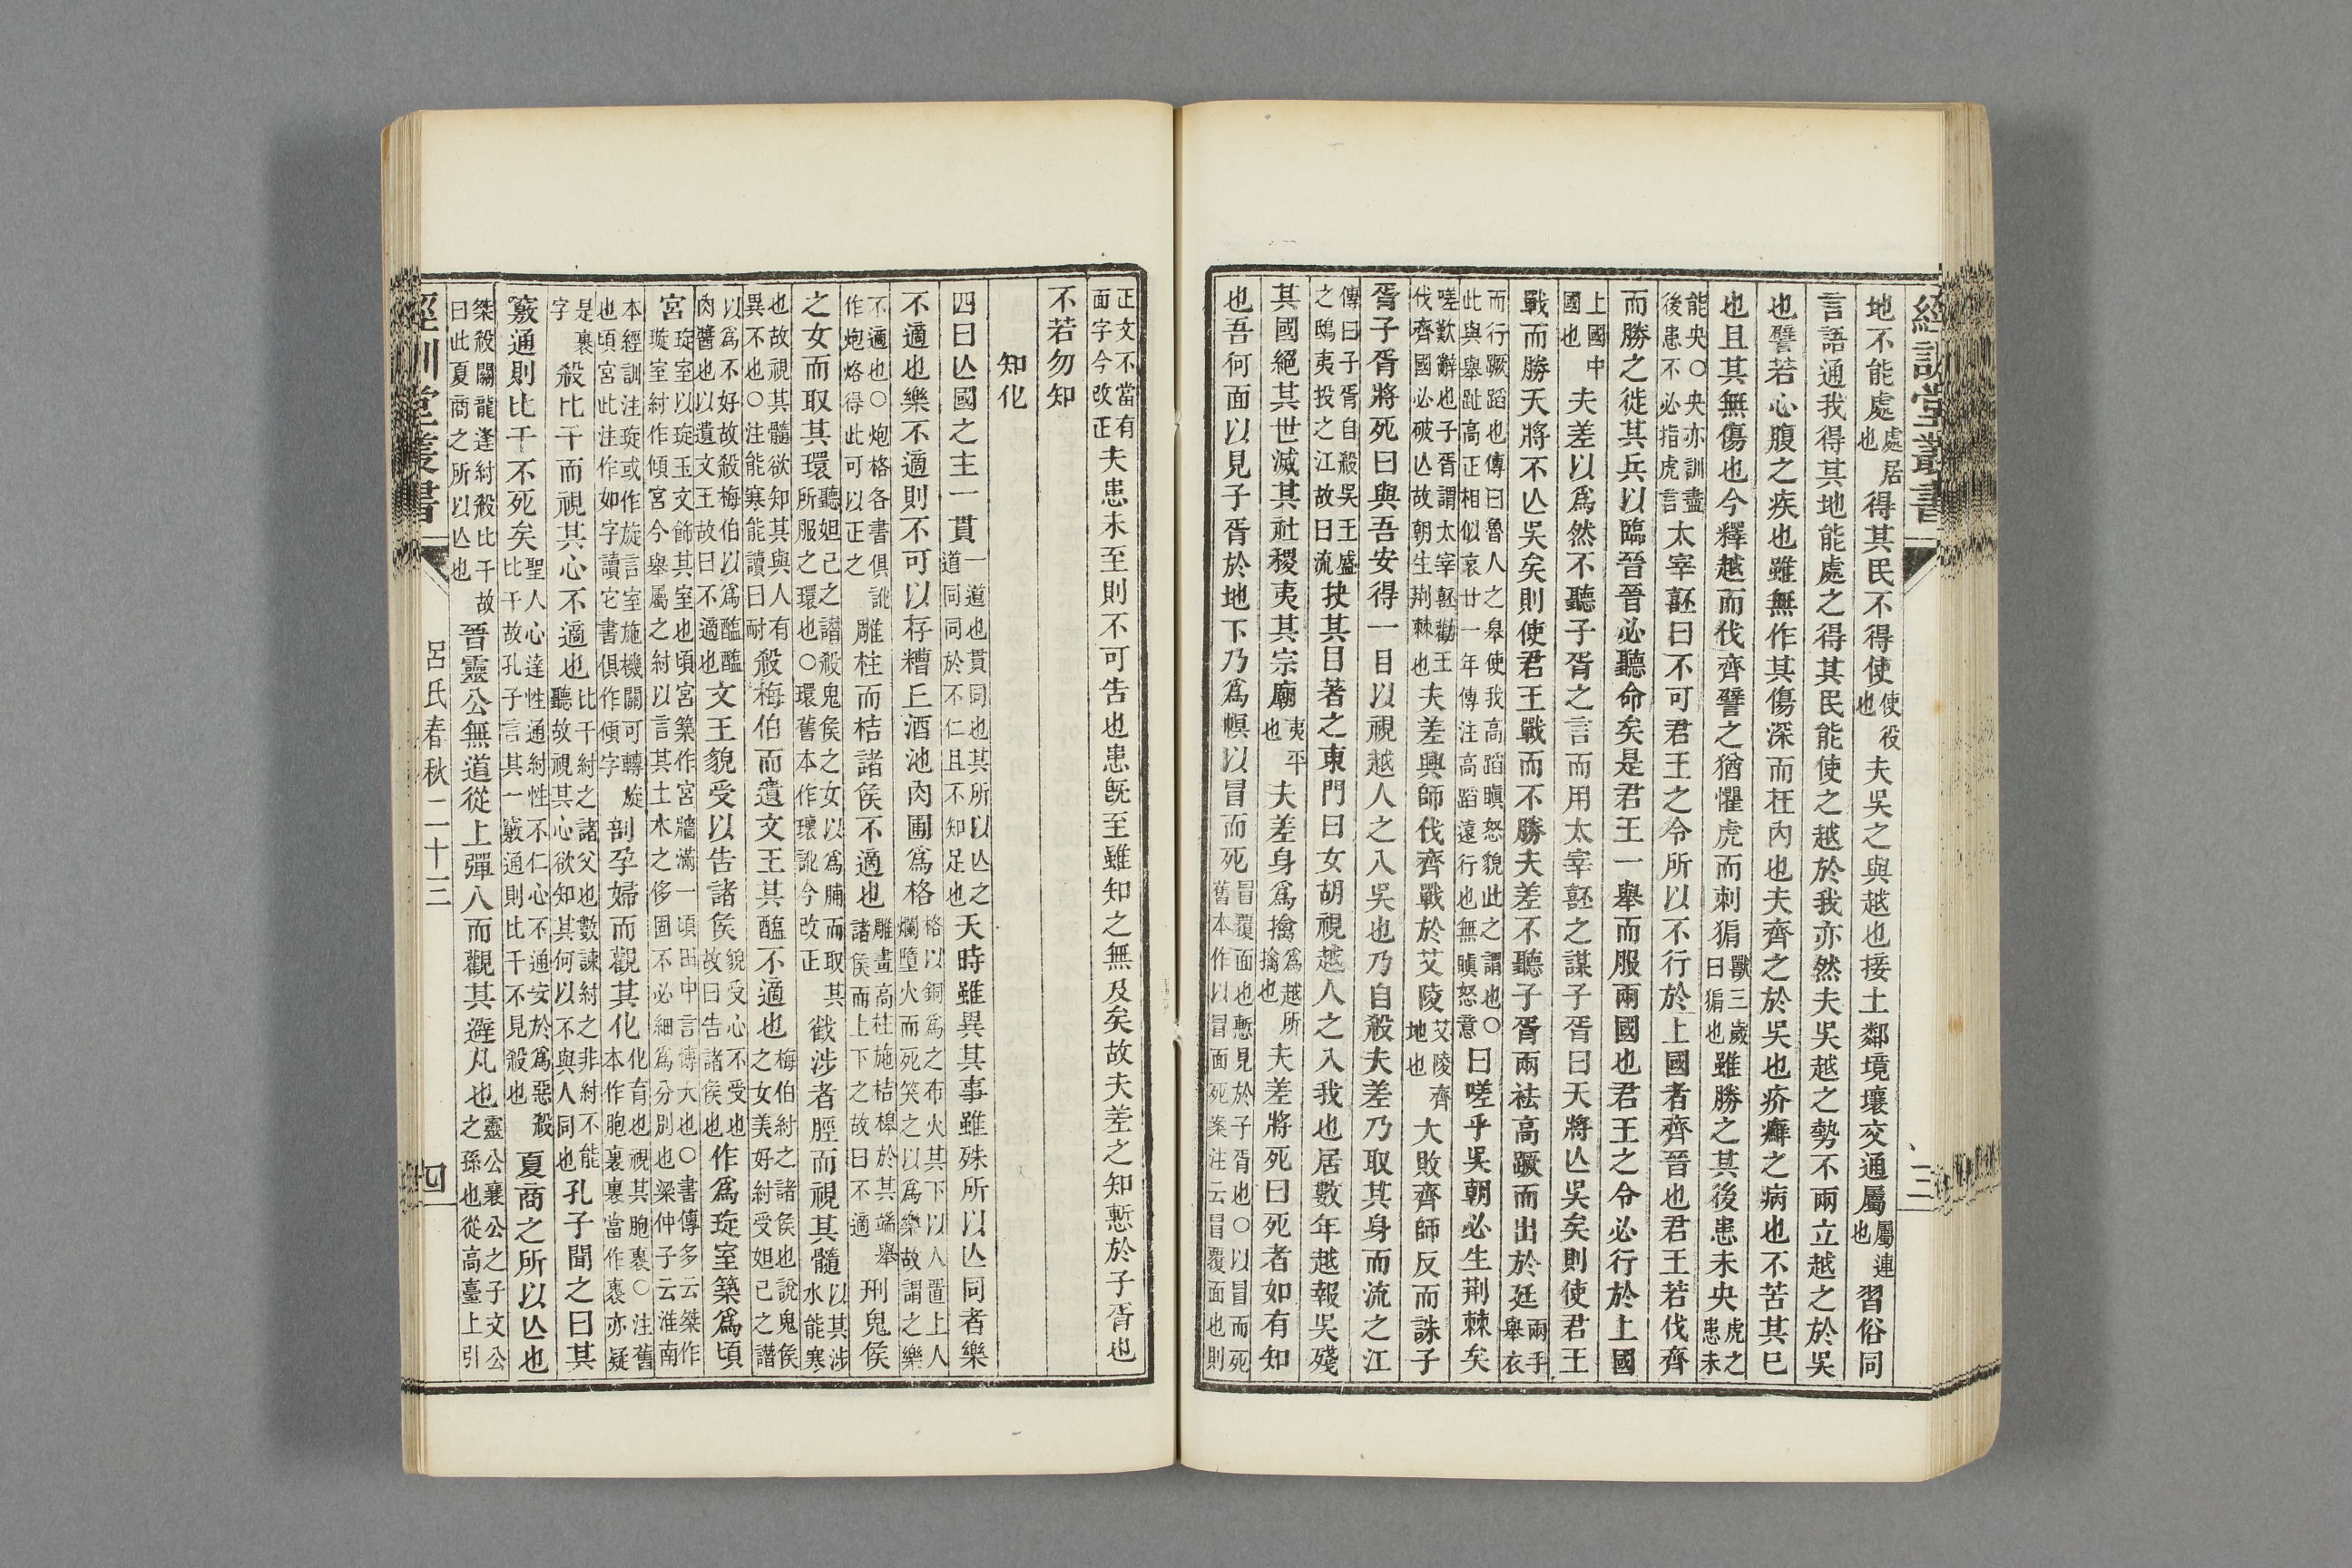 經訓堂叢書
三
地不能處處居也得其民不得使使役也夫吳之與越也接土鄰境壤交通屬屬連也習俗同
言語通我得其地能處之得其民能使之越於我亦然夫吳越之勢不兩立越之於吳
也譬若心腹之疾也雖無作其傷深而在內也夫齊之於吳也疥癬之病也不苦其已
也且其無傷也今釋越而伐齊譬之猶懼虎而刺猏獸三歲曰猏也雖勝之其後患未央虎之患未
能央○央亦訓盡後患不必指虎言太宰嚭曰不可君王之令所以不行於上國者齊晉也君王若伐齊
而勝之徙其兵以臨晉晉必聽命矣是君王一舉而服兩國也君王之令必行於上國
上國中國也夫差以爲然不聽子胥之言而用太宰嚭之謀子胥曰天將亾吳矣則使君王
戰而勝天將不亾吳矣則使君王戰而不勝夫差不聽子胥兩袪高蹶而出於廷兩手舉衣
而行蹶蹈也傳曰魯人之皋使我高蹈瞋怒貌此之謂也○此與舉趾高正相似哀廿一年傳注高蹈遠行也無瞋怒意曰嗟乎吳朝必生荆棘矣
嗟歎辭也子胥謂太宰嚭勸王伐齊國必破亾故朝生荆棘也夫差興師伐齊戰於艾陵艾陵齊地也大敗齊師反而誅子
胥子胥將死曰與吾安得一目以視越人之入吳也乃自殺夫差乃取其身而流之江
傳曰子胥自殺吳王盛之鴟夷投之江故曰流抉其目著之東門曰女胡視越人之入我也居數年越報吳殘
其國絕其世滅其社稷夷其宗廟夷平也夫差身爲擒爲越所擒也夫差將死曰死者如有知
也吾何面以見子胥於地下乃爲幎以冒而死冒覆面也慙見於子胥也○以冒而死舊本作以冒面死案注云冒覆面也則
正文不當有面字今改正夫患未至則不可告也患既至雖知之無及矣故夫差之知慙於子胥也
不若勿知
知化
四曰亾國之主一貫一道也貫同也其所以亾之道同同於不仁且不知足也天時雖異其事雖殊所以亾同者樂
不適也樂不適則不可以存糟丘酒池肉圃爲格格以銅爲之布火其下以人置上人爛墮火而死笑之以爲樂故謂之樂
不適也○炮格各書俱訛作炮烙得此可以正之雕柱而桔諸侯不適也雕畫高柱施桔槔於其端舉諸侯而上下之故曰不適刑鬼侯
之女而取其環聽妲己之譖殺鬼侯之女以爲脯而取其所服之環也○環舊本作瓌訛今改正截涉者脛而視其髓以其涉水能寒
也故視其髓欲知其與人有異不也○注能寒能讀曰耐殺梅伯而遺文王其醢不適也梅伯紂之諸侯也說鬼侯之女美好紂受妲己之譖
以爲不好故殺梅伯以爲醢醢肉醬也以遺文王故曰不適也文王貌受以告諸侯貌受心不受也故曰告諸侯也作爲琁室築爲頃
宮琁室以琁玉文飾其室也頃宮築作宮牆滿一頃田中言博大也○書傳多云桀作璇室紂作傾宮今舉屬之紂以言其土木之侈固不必細爲分別也梁仲子云淮南
本經訓注琁或作旋言室施機關可轉旋也頃宮此注作如字讀它書俱作傾字剖孕婦而觀其化化育也視其胞裏○注舊本作胞裹裹當作裏亦疑
是裹字殺比干而視其心不適也比干紂之諸父也數諫紂之非紂不能聽故視其心欲知其何以不與人同也孔子聞之曰其
竅通則比干不死矣聖人心達性通紂性不仁心不通安於爲惡殺比干故孔子言其一竅通則比干不見殺也夏商之所以亾也
桀殺關龍逢紂殺比干故曰此夏商之所以亾也晉靈公無道從上彈人而觀其避丸也靈公襄公之子文公之孫也從高臺上引
經訓堂叢書
呂氏春秋二十三
四